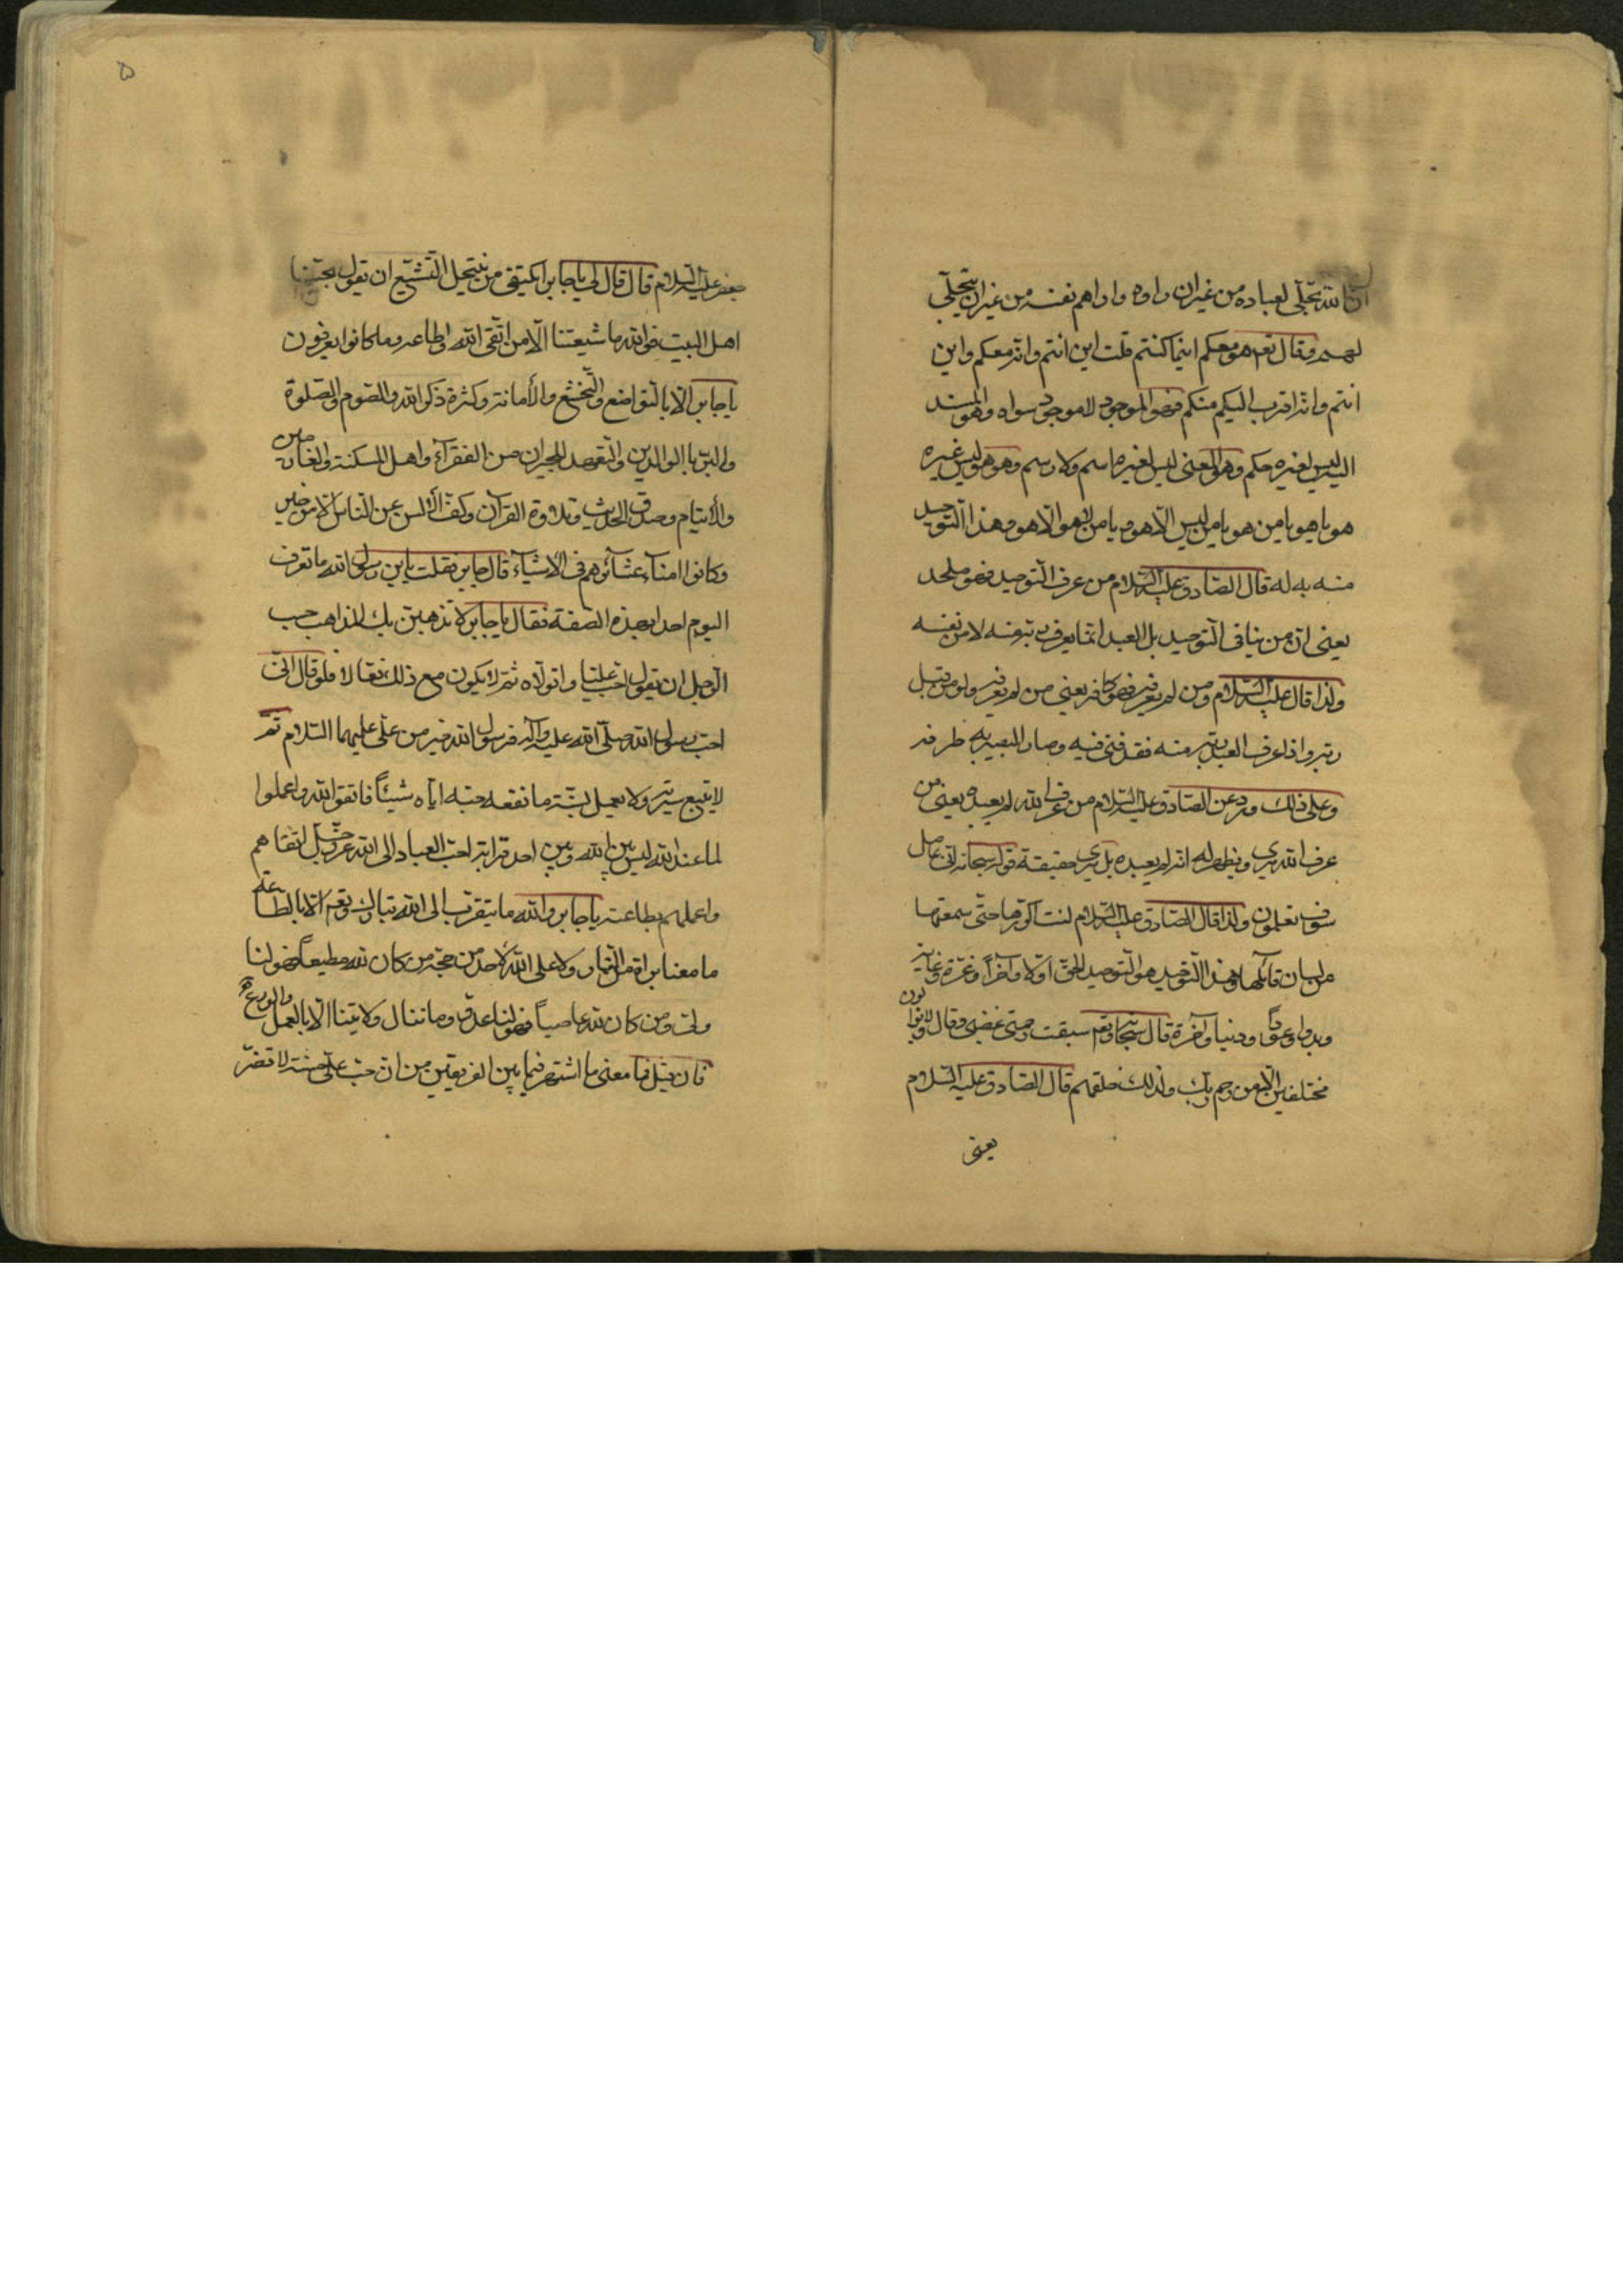 ان الله تجلّى لعباده من غير ان راوه واراهم نفسه من غير ان يتجلّى
لهم وقال تعم هو معكم اينما كنتم قلت اين انتم وانه معكم واين
انتم وانه اقرب اليكم منكم فهو الموجود لا موجود سواه وهو
ليس لغيره حكم وهو المعنى ليس لغيره اسم ولا رسم وهو هو ليس غيره
هو يا هو يا من هو يا من ليس الّا هو ويا من لا هو الّا هو وهذا التوحيد
منه به له قال الصّادق عليه السّلام من عرف التوحيد فهو ملحد
يعنى ان من ينافى التوحيد بل العبد انّما يعرف ربّه منه لا من نفسه
ولذا قال عليه السّلام ومن لم يعرفه فهو كافر يعنى من لم يعرفه ولو من قبل
ربّه واذا عرف العبد ربّه منه فقد فنى فيه وصار البصير به طرفه
وعلى ذلك ورد عن الصّادق عليه السّلام من عرف الله لم يعبده يعنى من
عرف الله يرى ويظهر له انه لم يعبده بل يرى حقيقة قوله سبحانه انى عامل
سوف تعلمون ولذا قال الصّادق عليه السّلام لست اكرّرها حتّى سمعتها
من لسان قائلها وهذا التوحيد هو التوحيد الحقّ اوّلا وآخراً وغرّة وغاية
وبدوا وعوداً ودنيا وآخرة قال سبحانه وتعم سبقت رحمتى غضبى وقال ولا يزالون
مختلفين الّا من رحم ربّك ولذلك خلقهم قال الصّادق عليه السّلام
يعنى
۵
جعفر عليه السّلام قال قال لى يا جابر ايكتفى من ينتحل التّشيّع ان يقول بحبّنا
اهل البيت فوالله ما شيعتنا الّا من اتّقى الله واطاعه وما كانوا يعرفون
يا جابر الّا بالتّواضع والتّخشّع والأمانة وكثرة ذكر الله والصّوم والصّلوة
والبرّ بالوالدين والتّعهد للجيران من الفقرآء واهل المسكنة والغارمين
والأيتام وصدق الحديث وتلاوة القرآن وكفّ الألسن عن النّاس الّا من خير
وكانوا امنآء عشآئرهم فى الأشيآء قال جابر فقلت يا بن رسول الله ما نعرف
اليوم احدا بهذه الصّفة فقال يا جابر لا تذهبنّ بك المذاهب حسب
الرّجل ان يقول احبّ عليّا واتولّاه ثمّ لا يكون مع ذلك فعّالا فلو قال انّى
احبّ رسول الله صلّى الله عليه وآله فرسول الله خير من علىّ عليهما السّلام ثمّ
لا يتّبع سيرته ولا يعمل بسنّته ما نفعه حبّه ايّاه شيئاً فاتّقوا الله واعملوا
لما عند الله ليس بين الله وبين احد قرابة احبّ العباد الى الله عزّ وجلّ اتقاهم
واعملهم بطاعته يا جابر والله ما يتقرّب الى الله تبارك وتعم الّا بالطّاعة
ما معنا براة من النّار ولا على الله لأحد من حجّة من كان لله مطيعاً فهو لنا
ولىّ ومن كان لله عاصياً فهو لنا عدوّ وما تنال ولايتنا الّا بالعمل والورع
فان قيل فما معنى ما اشتهر فيما بين الفريقين من ان حبّ علىّ حسنة لا تضرّ